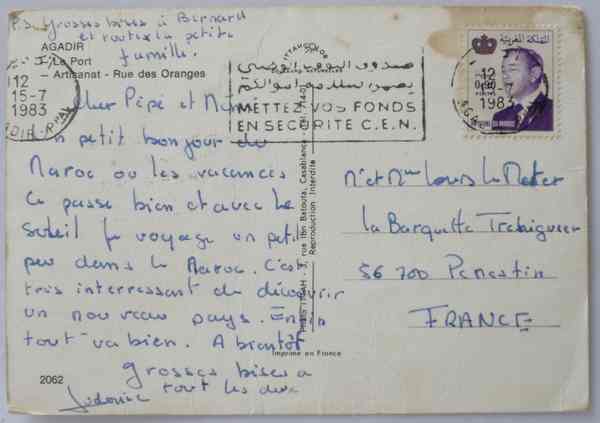 P.S. Grosses bises à Bernard
et toute la petite
famille.
AGADIR
Le Port
Artisanat - Rue des Oranges
12
15-7
1983
صندوق التوفير الوطني
يضمن سلامة أموالكم
METTEZ VOS FONDS
EN SECURITE C.E.N.
المملكة المغربية
12
15-7
1983
Cher Pépé et Mémé
un petit bonjour du
Maroc où les vacances
ce passe bien et avec le
soleil je voyage un petit
peu dans le Maroc. C'est
très interressant de découvrir
un nouveau pays. Enfin
tout va bien. A bientôt
grosses bises à
tout les deux
Ludovic
Mr et Mme Louis
la Barquette Tréhiguier
56 700 Penestin
FRANCE
3, rue Ibn Batouta, Casablanca
Reproduction Interdite
Imprimé en France
2062